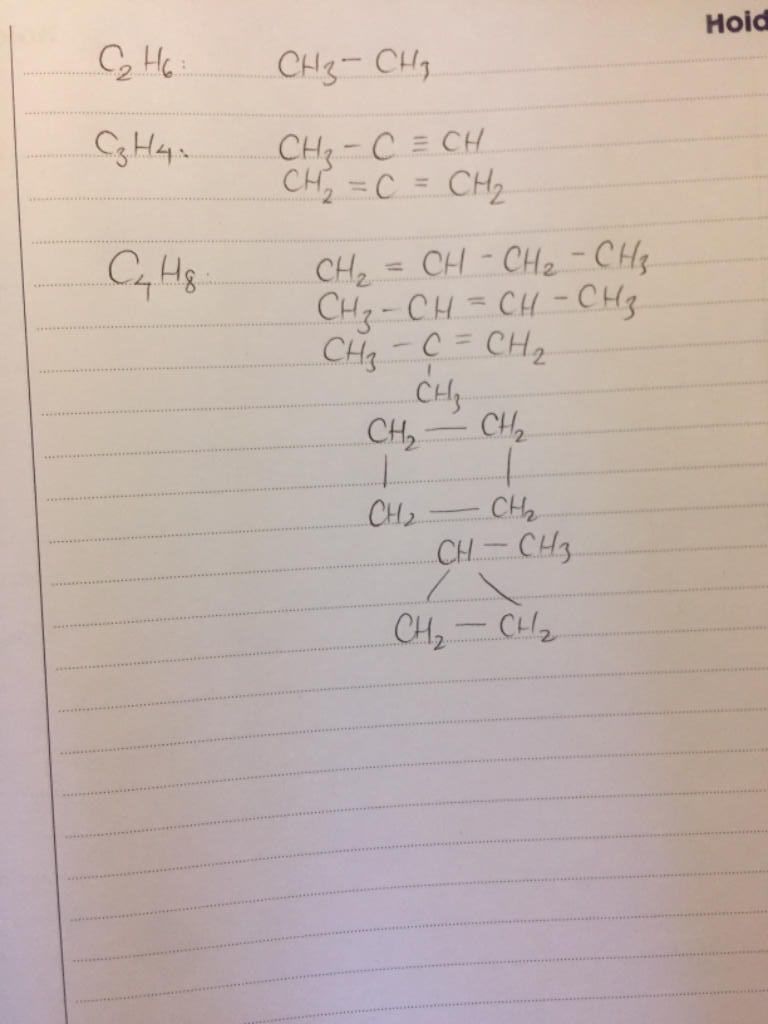 Hoid
C2H6: CH3 - CH3
C3H4: CH3 - C ≡ CH
CH2 = C = CH2
C4H8: CH2 = CH - CH2 - CH3
CH3 - CH = CH - CH3
CH3 - C = CH2
CH3
CH2 — CH2
CH2 — CH2
CH - CH3
CH2 — CH2